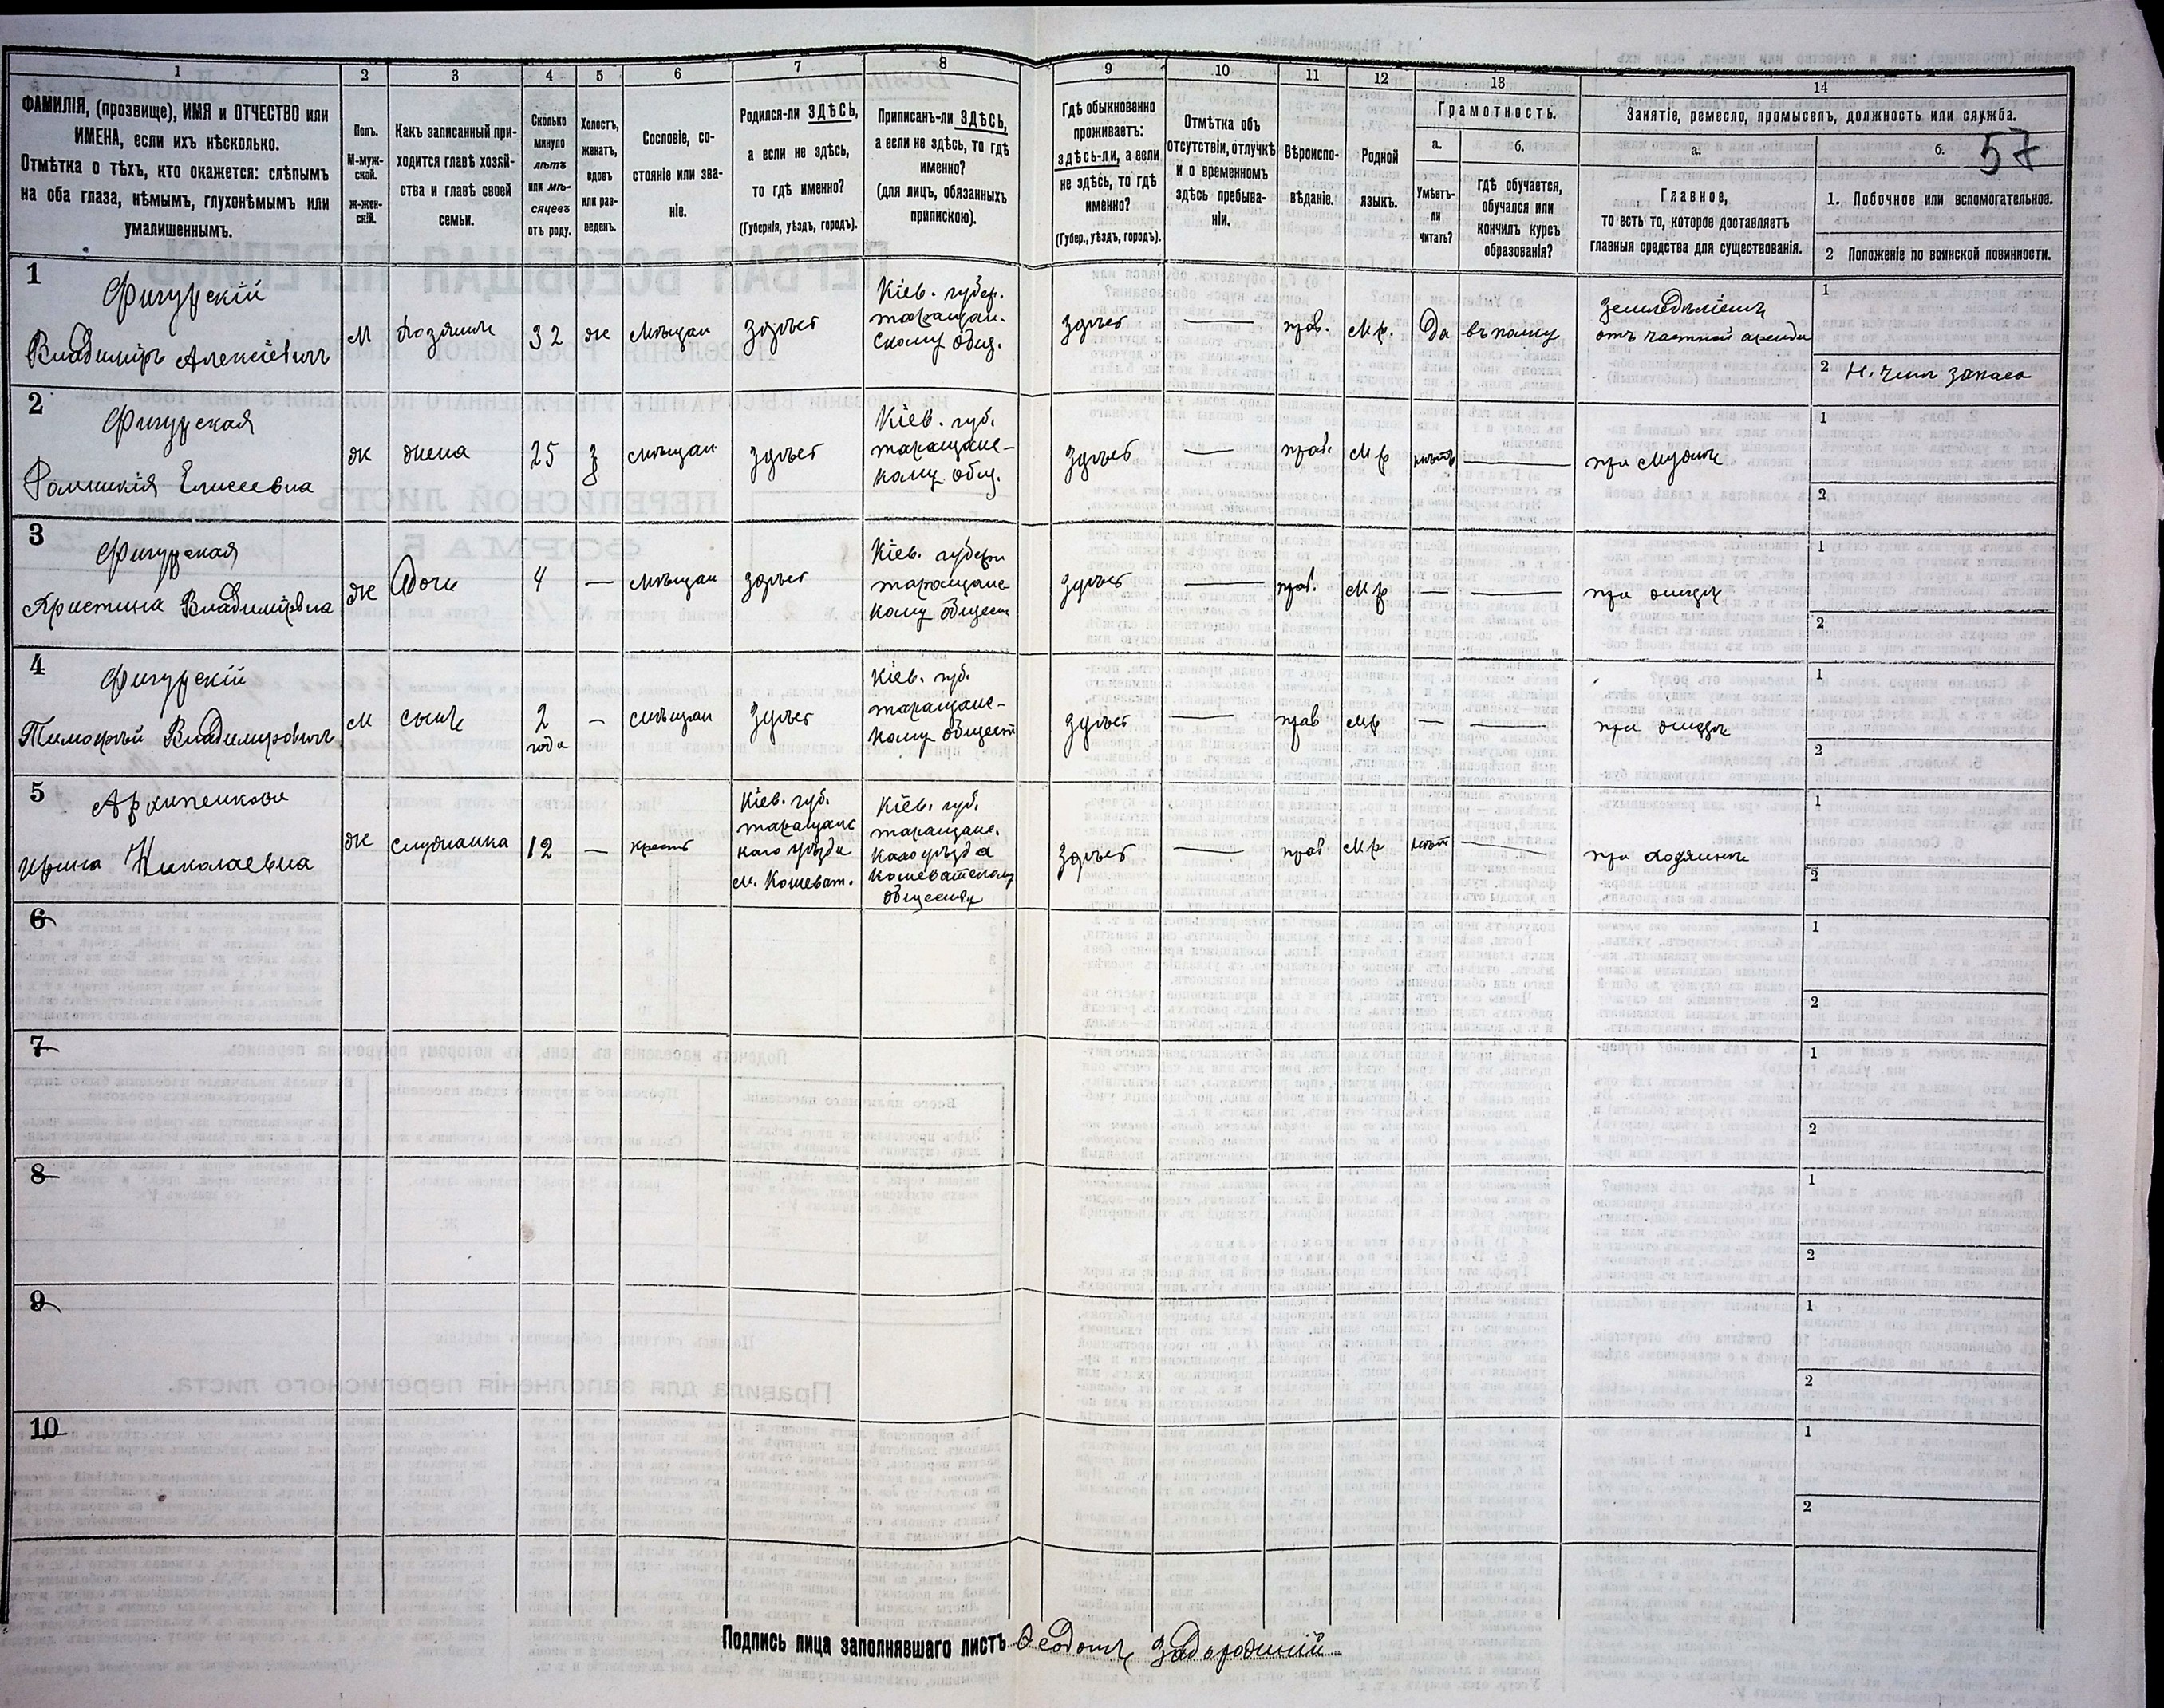 1 2 3 4 5 6 7 8 9 10 11 12 13 14
ФАМИЛІЯ, (прозвище), ИМЯ и ОТЧЕСТВО или
ИМЕНА, если ихъ нѣсколько.
Отмѣтка о тѣхъ, кто окажется: слѣпымъ
на оба глаза, нѣмымъ, глухонѣмымъ или
умалишеннымъ.
Полъ.
М-муж-
ской.
ж-жен-
скій.
Какъ записанный при-
ходится главѣ хозяй-
ства и главѣ своей
семьи.
Сколько
минуло
лѣтъ
или мѣ-
сяцевъ
отъ роду.
Холостъ,
женатъ,
вдовъ
или раз-
веденъ.
Сословіе, со-
стояніе или зва-
ніе.
Родился-ли ЗДѢСЬ,
а если не здѣсь,
то гдѣ именно?
(Губернія, уѣздъ, городъ).
Приписанъ-ли ЗДѢСЬ,
а если не здѣсь, то гдѣ
именно?
(для лицъ, обязанныхъ
припискою).
Гдѣ обыкновенно
проживаетъ:
здѣсь-ли, а если
не здѣсь, то гдѣ
именно?
(Губер., уѣздъ, городъ).
Отмѣтка объ
отсутствіи, отлучкѣ
и о временномъ
здѣсь пребыва-
ніи.
Вѣроиспо-
вѣданіе.
Родной
языкъ.
Грамотность.
а.
Умѣетъ-
ли
читать?
б.
гдѣ обучается,
обучался или
кончилъ курсъ
образованія?
Занятіе, ремесло, промыселъ, должность или служба.
а.
Главное,
то есть то, которое доставляетъ
главныя средства для существованія.
б. 57
1. Побочное или вспомогательное.
2 Положеніе по воинской повинности.
1
Фигурскій
Владиміръ Алексіевичъ
м
хозяинъ
32
ж
мѣщан
здѣсь
Кіев. губер.
таращан-
скому общ.
здѣсь
—
прав.
м.р.
да
въ полку
земледѣліемъ
отъ частной аренди
1
2 н. чин запаса
2
Фигурская
Елисеевна
ж
жена
25
з
мѣщан
здѣсь
Кіев. губ.
таращанс-
кому общ.
здѣсь
—
прав.
м р
нѣтъ
—
при мужѣ
1
2
3
Фигурская
Христина Владимірвна
ж
дочь
4
—
мѣщан
здѣсь
Кіев. губерн
таращанс
кому общест
здѣсь
—
прав.
м р
—
—
при отцѣ
1
2
4
Фигурскій
Тимофѣй Владимировичъ
м
сынъ
2
года
—
мѣщан
здѣсь
Кіев. губ.
таращанс-
кому общест
здѣсь
—
прав
мр
—
—
при отцѣ
1
2
5
Архипенкова
Ирина Николаевна
ж
служанка
12
—
крест
Кіев. губ.
таращанс
каго уѣзда
м. Кошеват.
Кіев. губ.
таращанс.
каго уѣзда
кошеватскому
обществу
здѣсь
—
прав
м р
нѣт
—
при хозяинѣ
1
2
6
1
2
7
1
2
8
1
2
9
1
2
10
1
2
Подпись лица заполнявшаго листъ Ѳеодотъ Задорожній